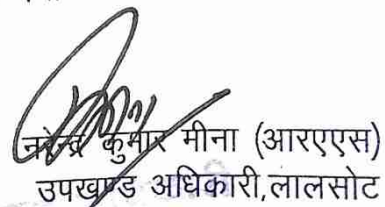 नरेन्द्र कुमार मीना (आरएएस)
उपखण्ड अधिकारी,लालसोट